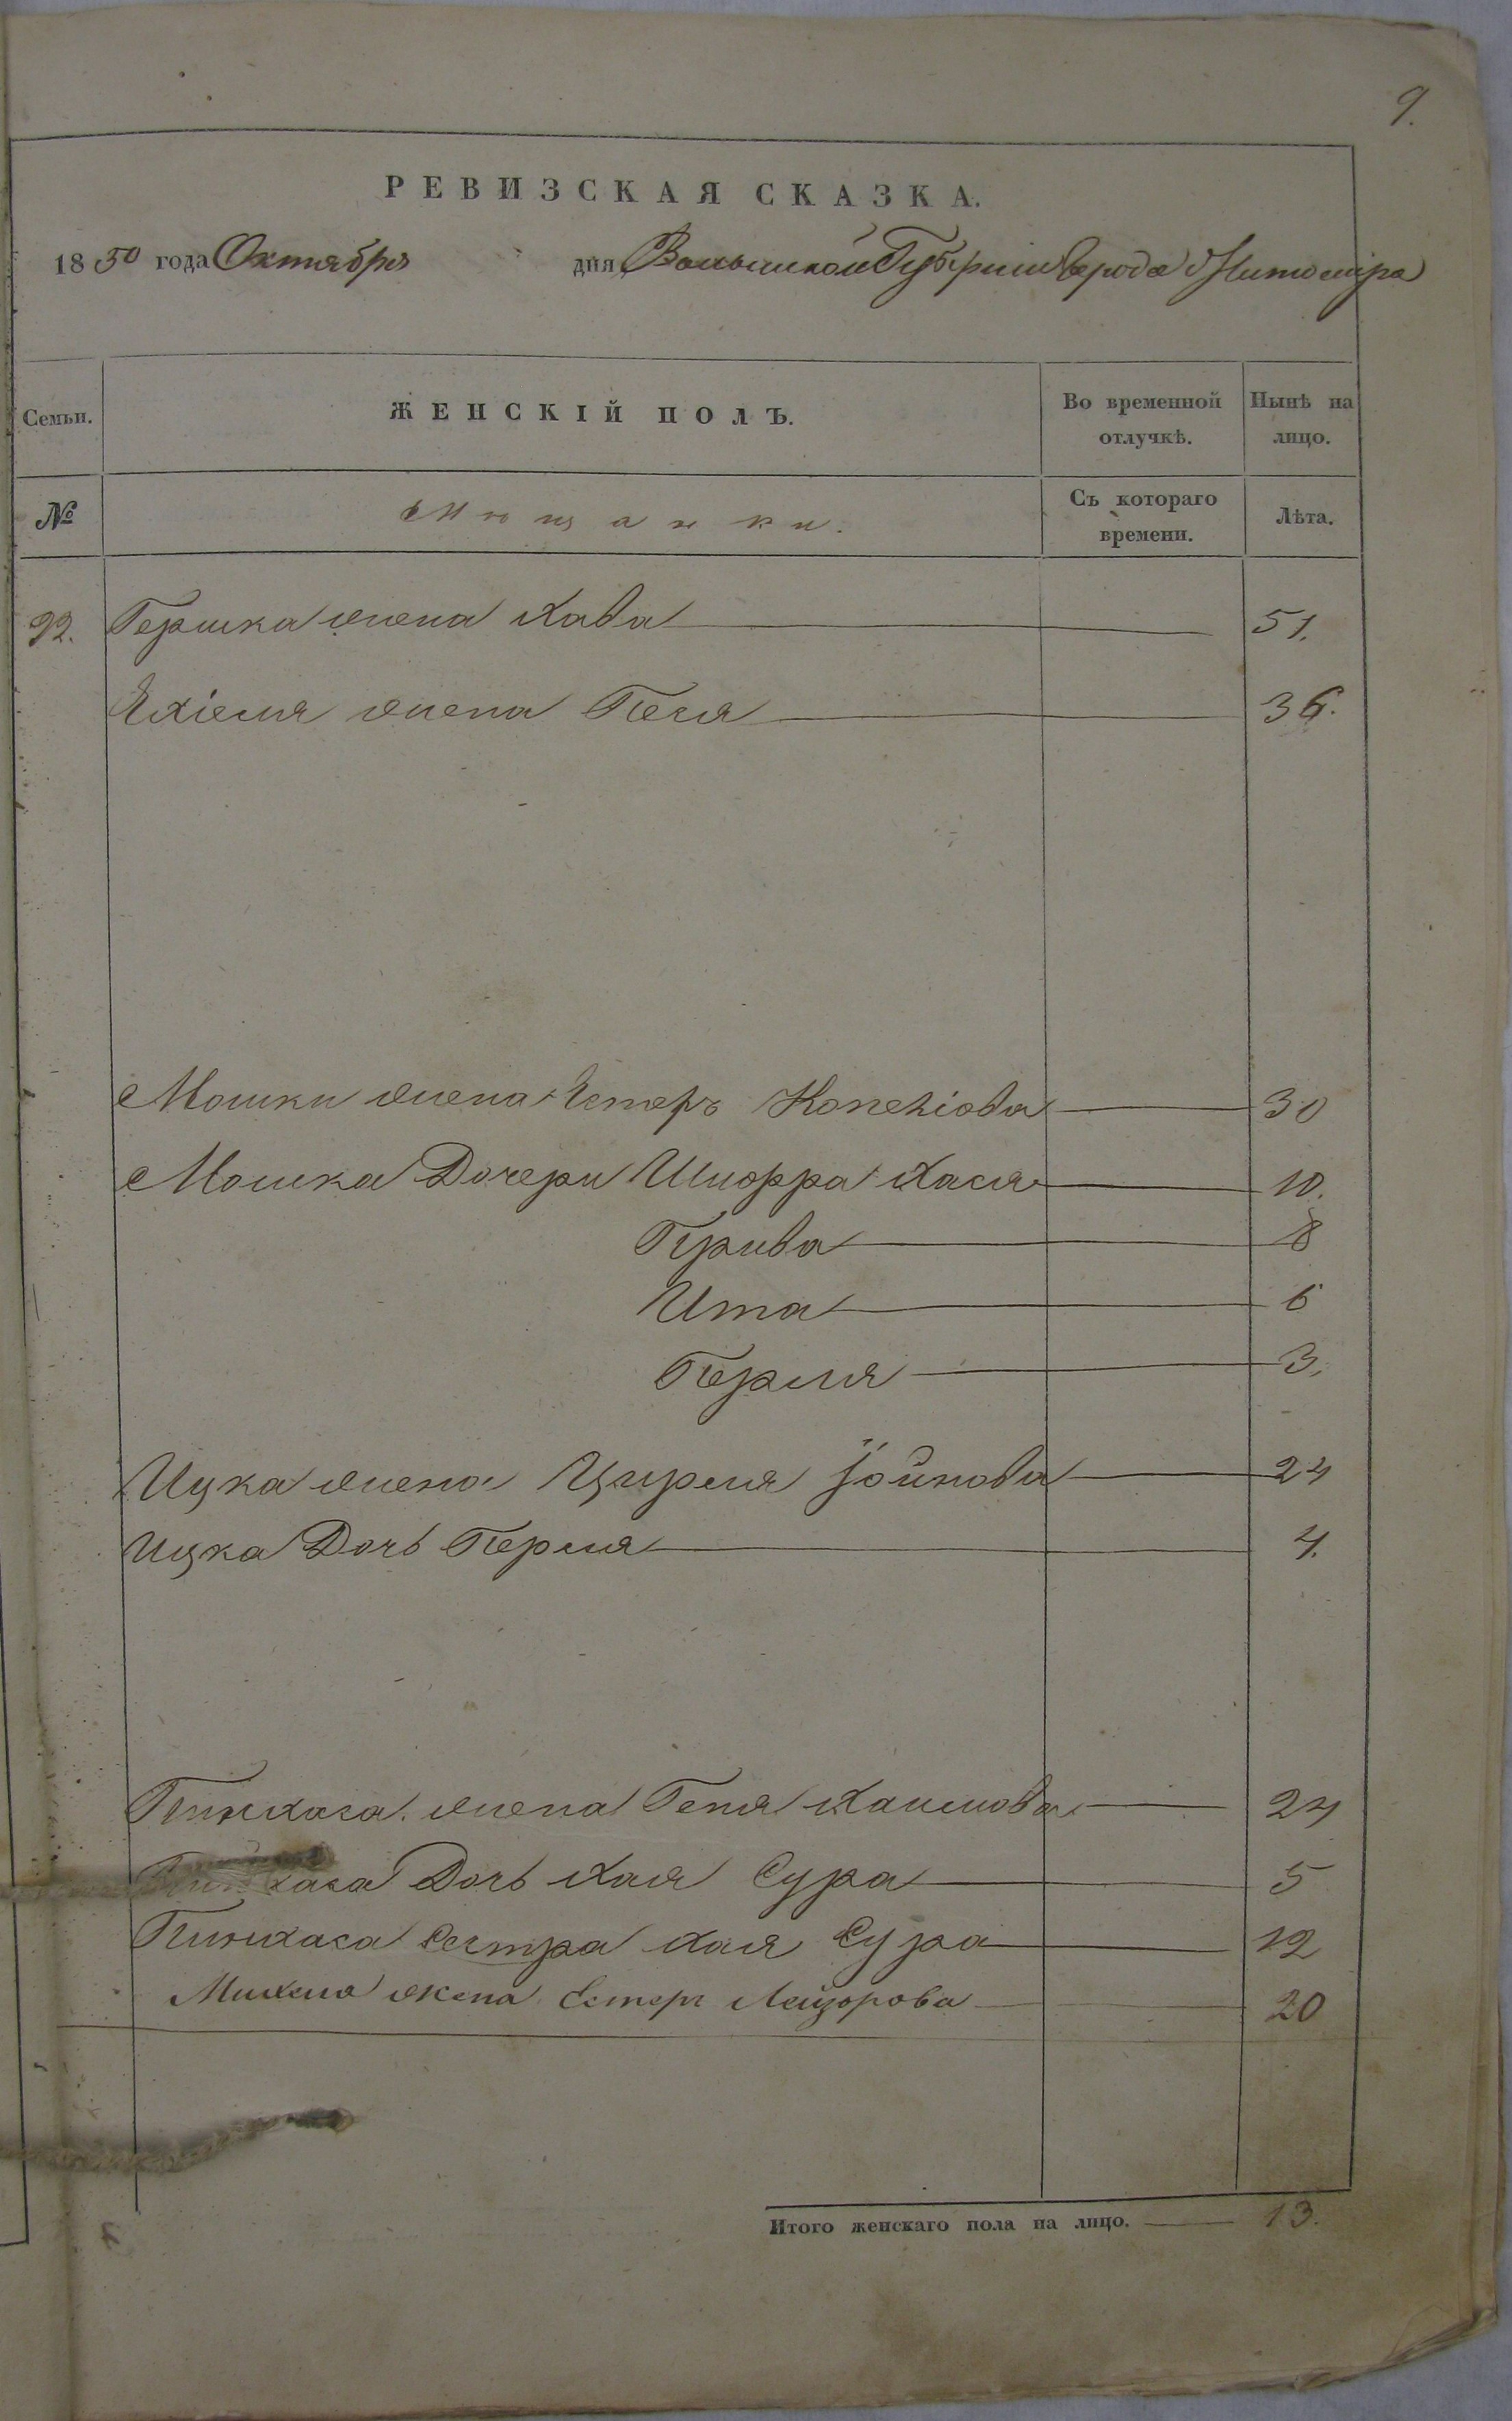 9.
РЕВИЗСКАЯ СКАЗКА.
1850 года Октября дня Волынской Губерніи города Житомира
Семьи. ЖЕНСКІЙ ПОЛЪ. Во временной отлучкѣ. Нынѣ на лицо.
№ Мѣщанки. Съ котораго времени. Лѣта.
22. Гершка жена Хава 51.
Ехіеля жена Песя 36.
Мошки жена Естеръ 30
Мошка Дочери Шифра Хася 10.
Ита 6
Перля 3.
Ицка жена Цирля Іойнова 24
Ицка Дочь Перля 4.
Пинхаса жена Геня Хаимова 24
Пинхаса Дочь Хая Сура 5
Пинхаса Сестра Хая Сура 12
Михеля жена Естеръ Лейзорова 20
Итого женскаго пола на лицо. 13.